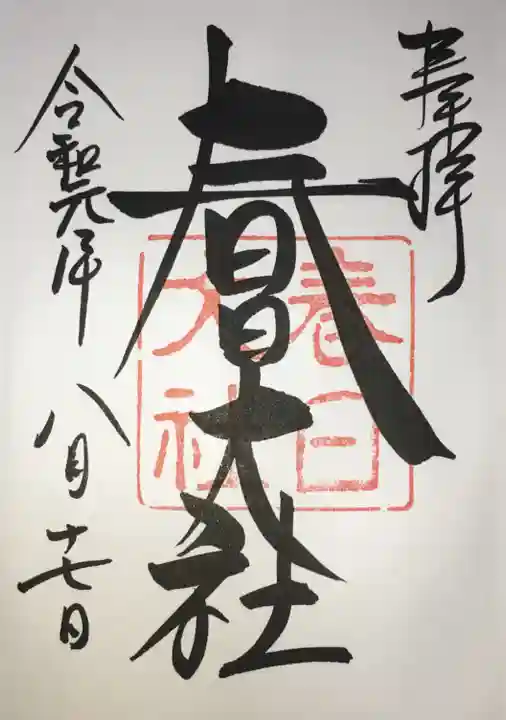 奉拝
春日大社
春日
大社
令和元年八月十七日